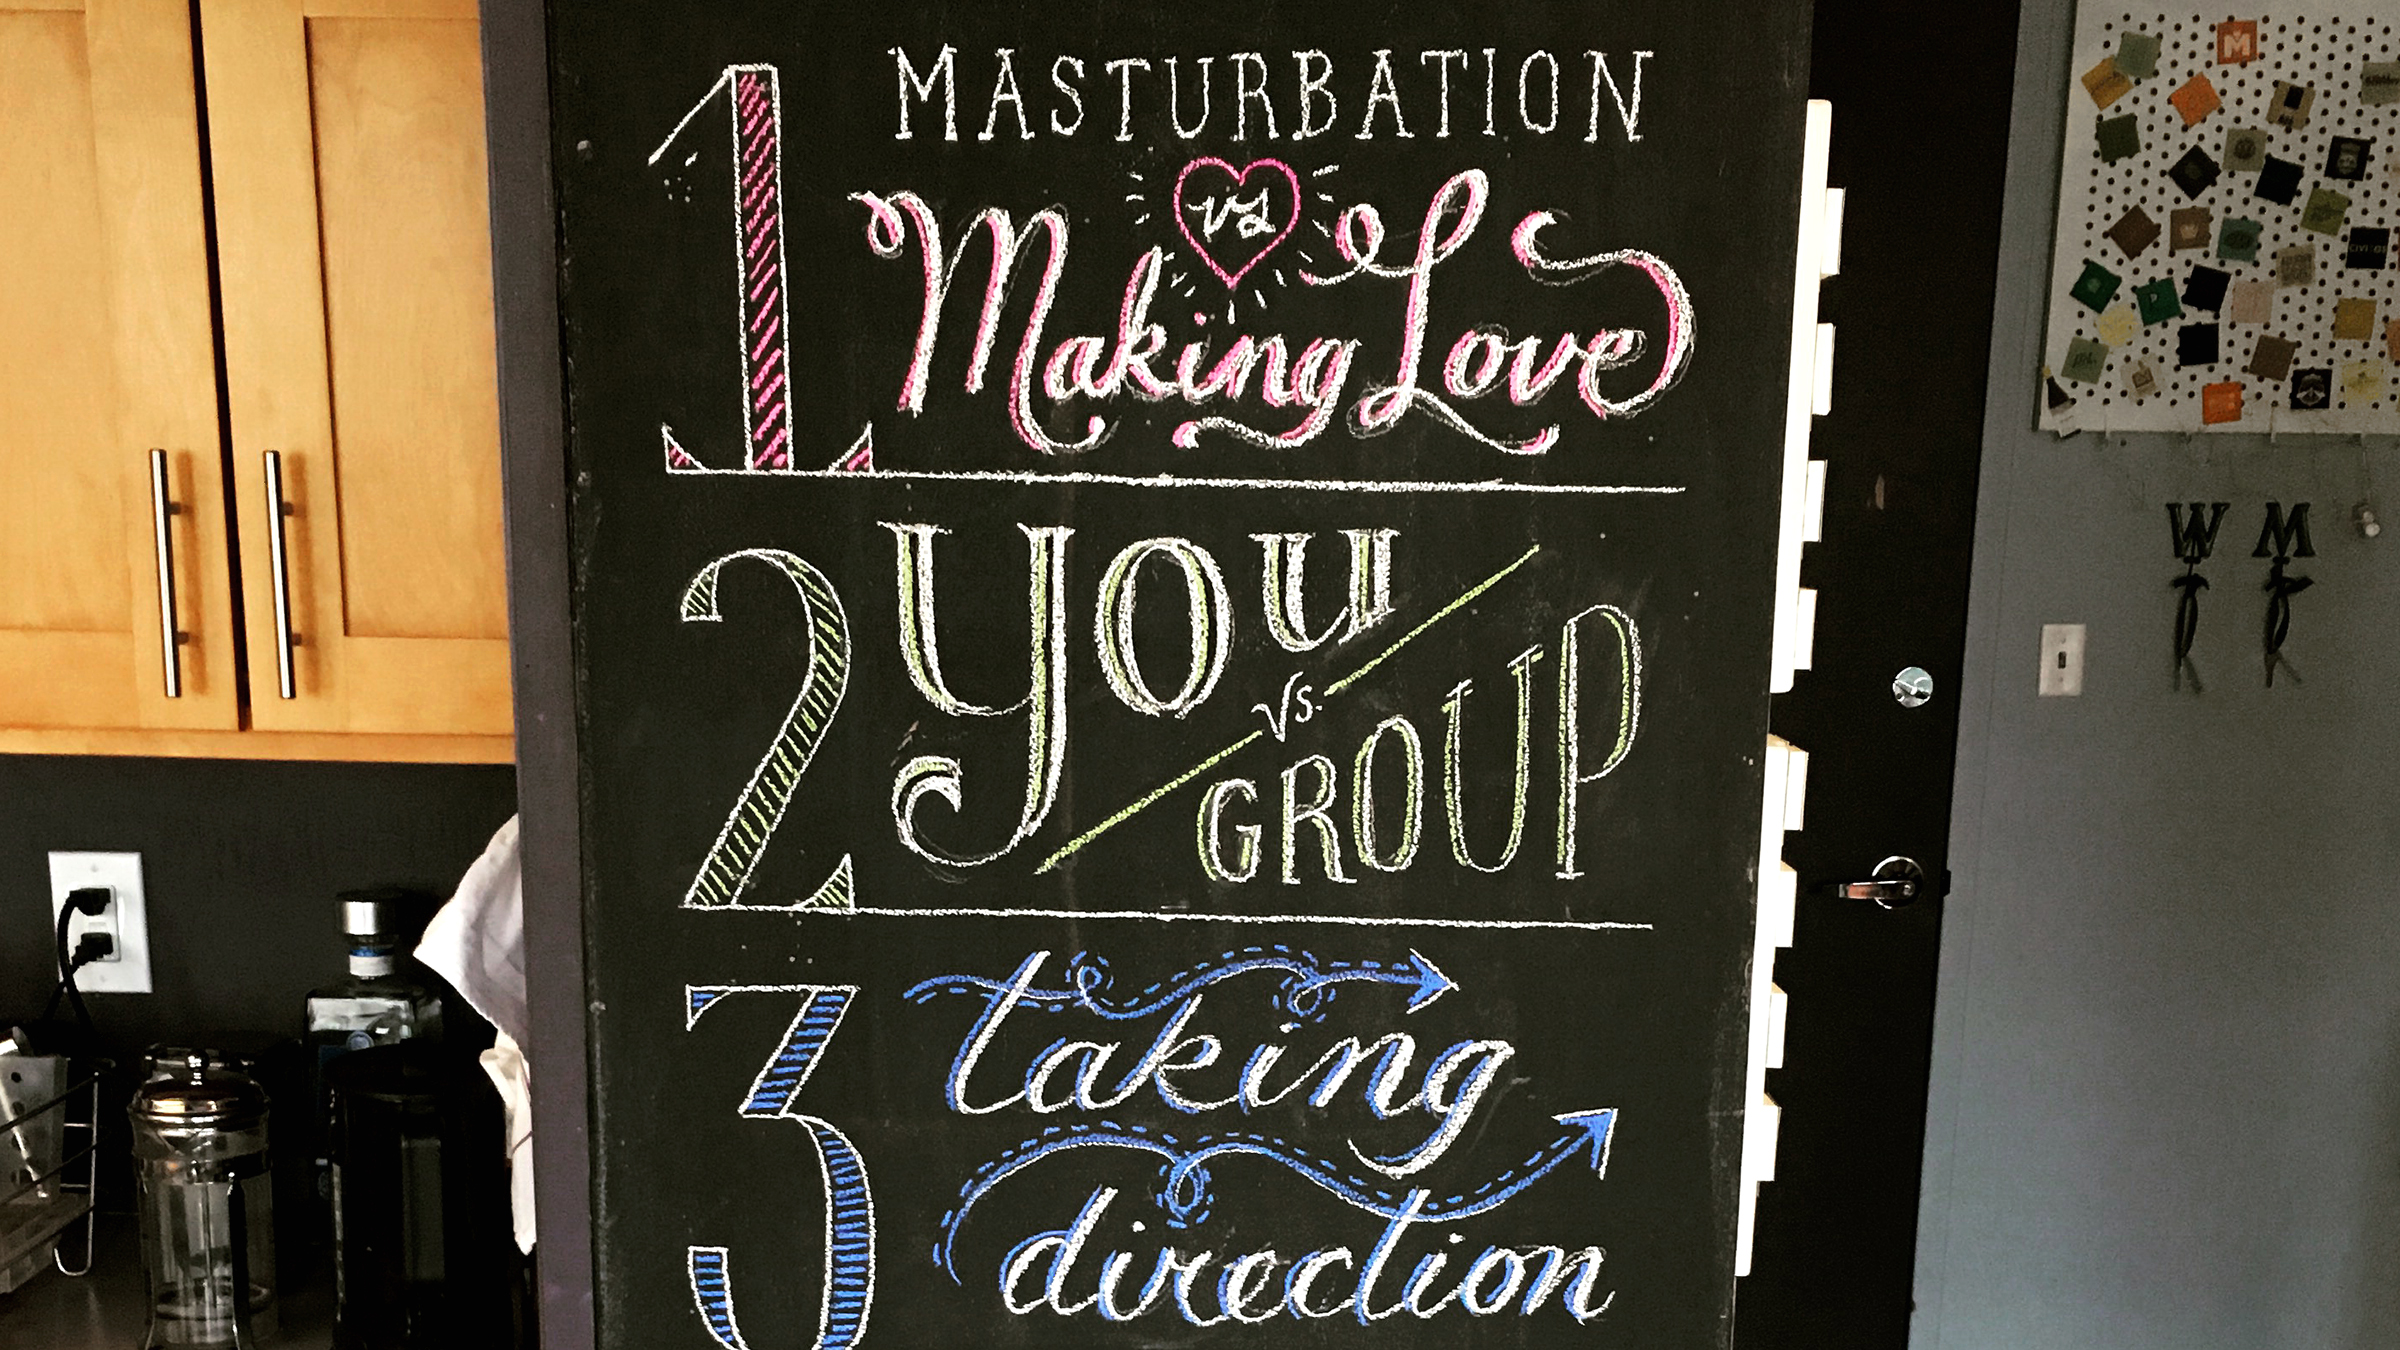 1 MASTURBATION
vs
Making Love
2 you
vs.
GROUP
3 taking
direction
W M
M
CIVITAS
P